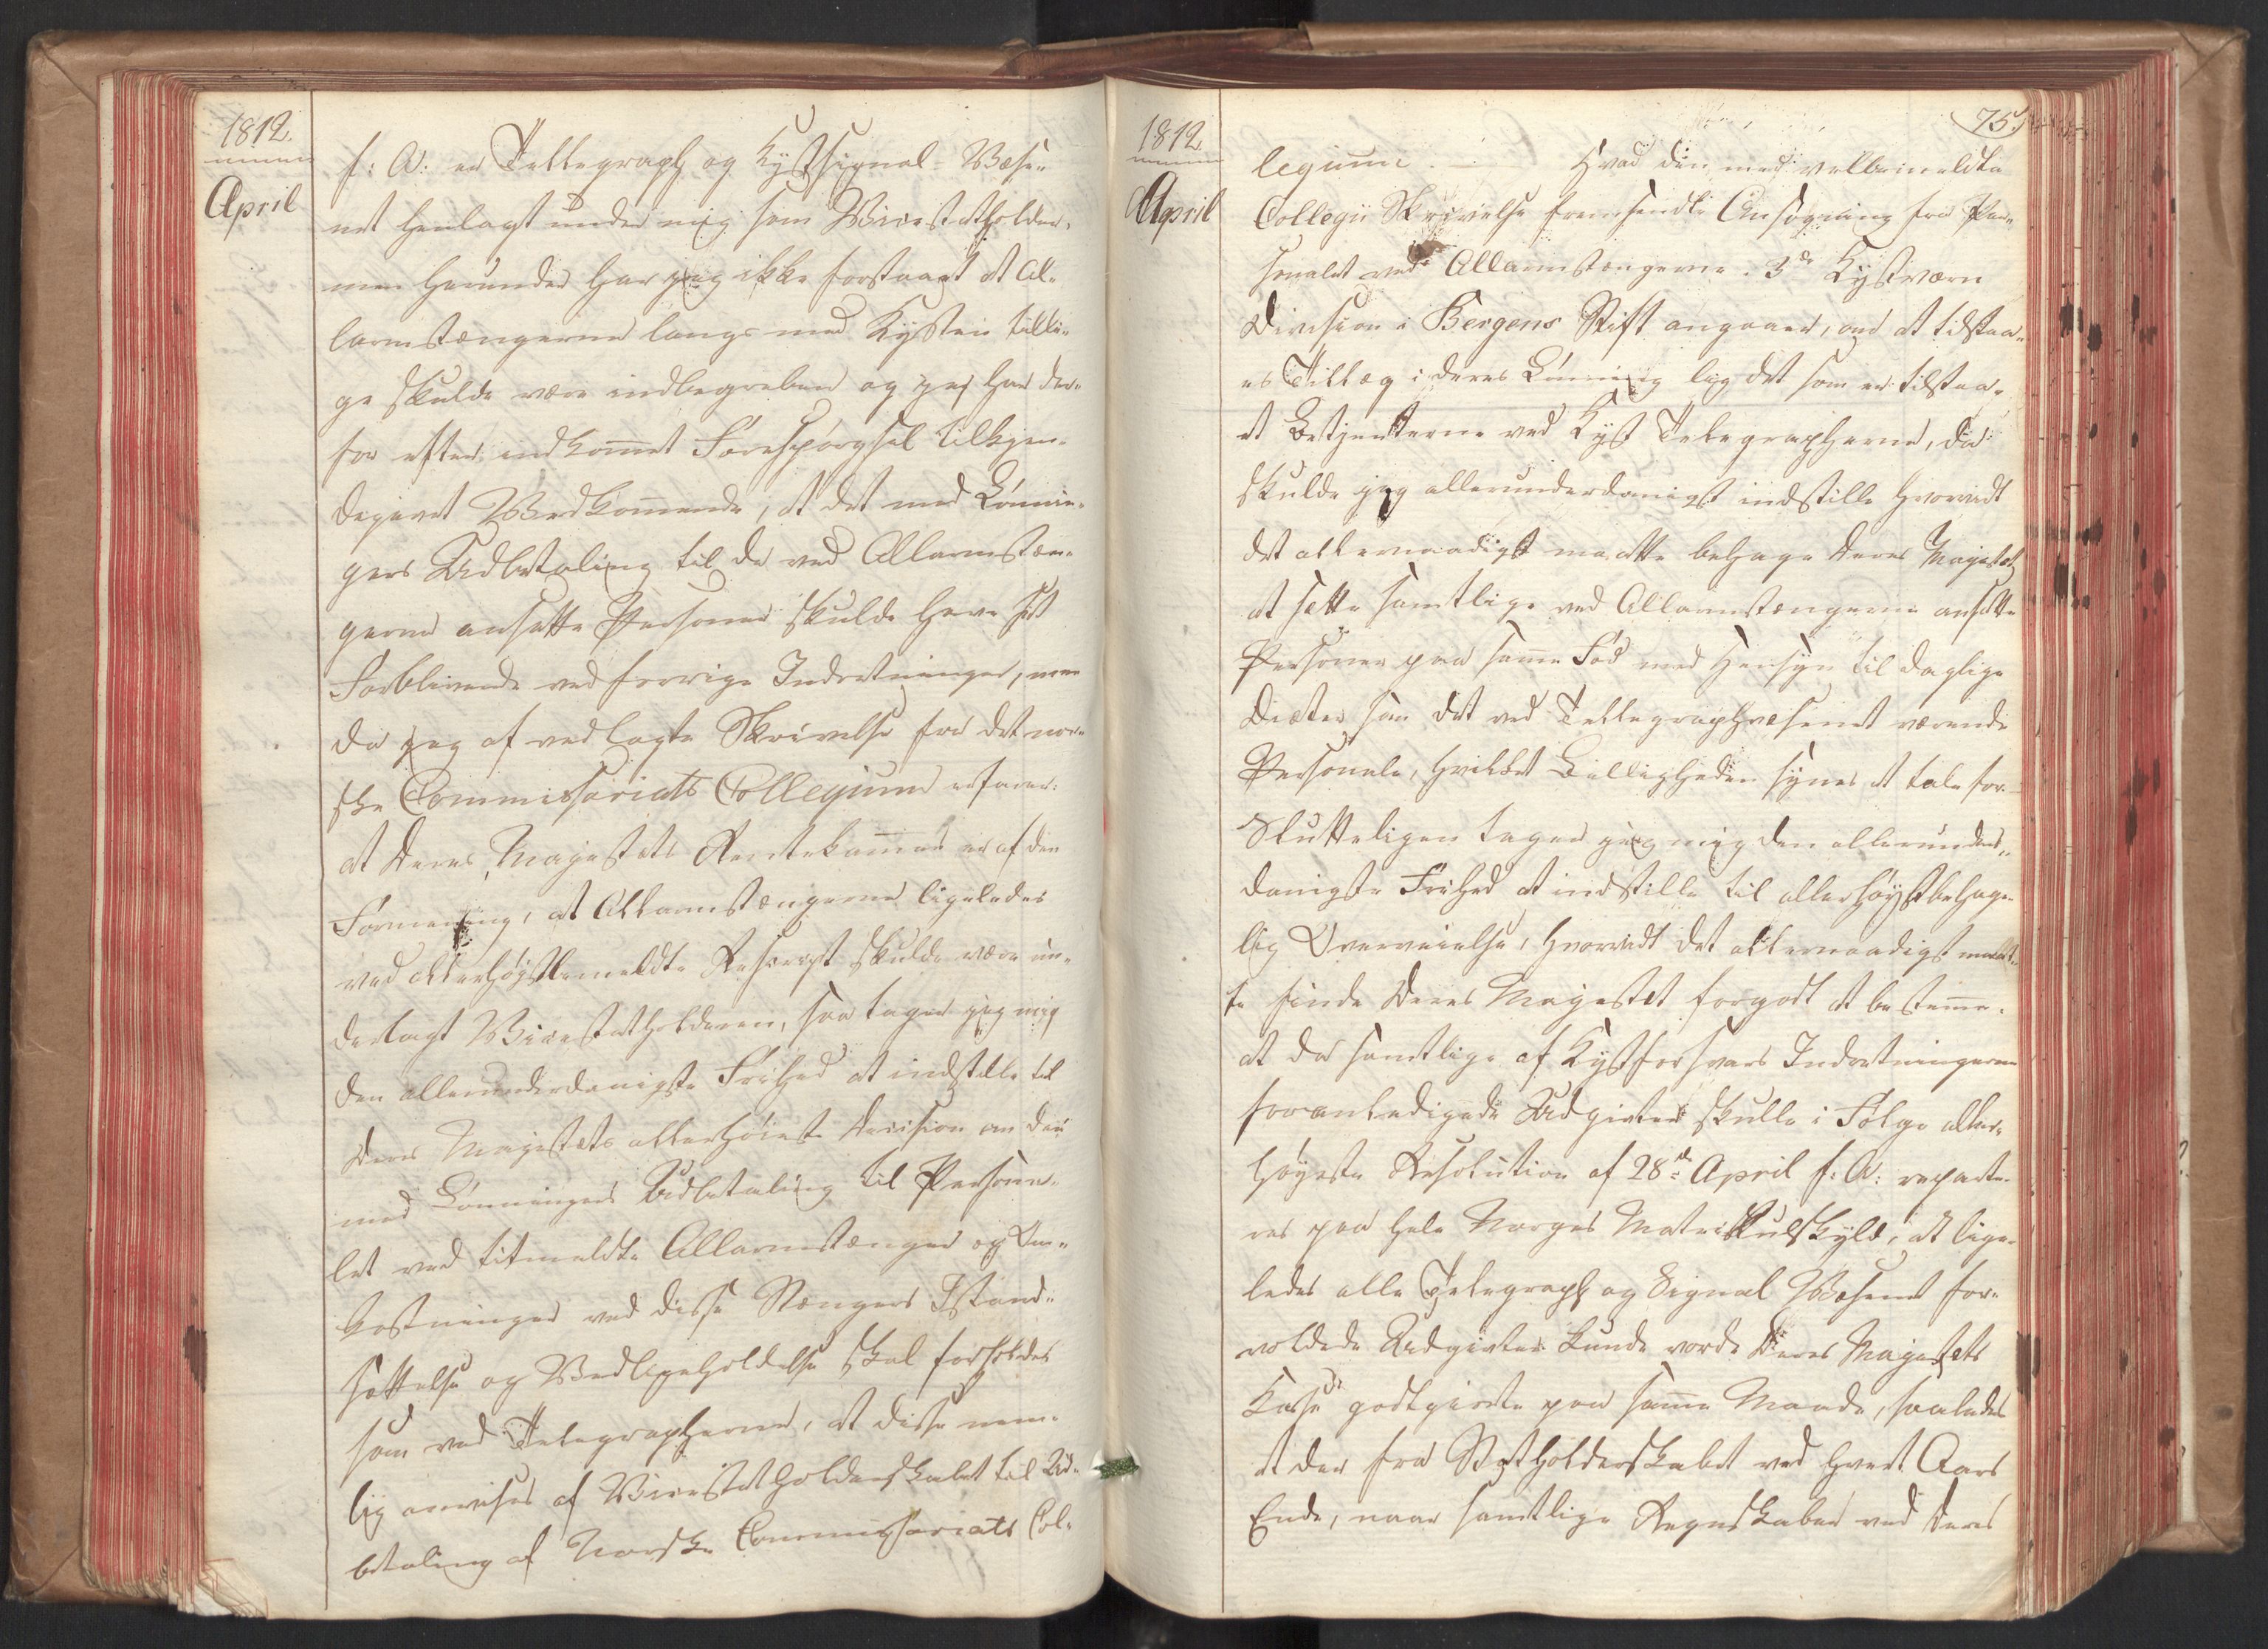 1812.
April
f: A: er Tellegraph og Kystsignal-Væse-
net henlagt under mig som Vicestatholder,
men herunder har jeg ikke forstaaet at Al-
larmstængerne langs med Kysten tilli-
ge skulde være indbegreben og jeg har der-
for efter indkom̄et Forespørgsel tilkjen-
degivet Vedkom̄ende, at det med Lønnin-
gers Udbetaling til de ved Allarmstæn-
gerne ansatte Personer skulde have sit
Forblivende ved forrige Indretninger, men
da jeg af vedlagte Skrivelse fra det nor-
ske Commissariats Collegium erfarer:
at Deres Majestæts Rentekam̄er er af den
Formening, at Allarmstængerne ligeledes
ved allerhøystbemeldte Rescript skulde være un-
derlagt Vicestatholderen, saa tager jeg mig
den allerunderdanigste Frihed at indstille til
Deres Majestæts allerhøieste Decision om der
med Lønningers Udbetaling til Persona-
let ved titmeldte Allarmstænger og Om-
kostninger ved disse Stængers Istand-
sættelse og Vedligeholdelse skal forholdes
som ved Telegrapherne, at disse nem-
lig anvises af Vicestatholderskabet til Ud-
betaling af Norske Commissariats Col-
1812
April
75.
legium. Hvad den med velbemeldte
Collegii Skrivelse fremsendte Ansøgning fra Per-
sonalet ved Allarmstængerne i 3de Kystværn
Division i Bergens Stift angaaer, om at tilstaa-
es Tillæg i deres Lønning lig det som er tilstaa-
et Betjenterne ved Kyst Telegrapherne, da
skulde jeg allerunderdanigst indstille hvorvidt
det allernaadigst maatte behage Deres Majestæt
at sætte samtlige ved Allarmstængerne ansatte
Personer paa sam̄e Fod med Hensyn til daglige
Diæter som det ved Tellegraphvæsenet værende
Personale, hvilket Billigheden synes at tale for.
Slutteligen tager jeg mig den allerunder-
danigste Frihed at indstille til allerhøystbehage-
lig Overveielse, hvorvidt det allernaadigst maat-
te finde Deres Majestæt forgodt at bestem̄e,
at da samtlige af Kystforsvars Indretningerne
foranledigede Udgivter skulle i Følge aller-
høyeste Resolution af 28de April f: A: reparte-
res paa hele Norges Matriskulskyld, at lige-
ledes alle Telegraph og Signal Væsenet for-
voldede Udgivter kunde vorde Deres Majestæts
Kasse godtgiorte paa sam̄e Maade, saaledes
at der fra Statholderskabet ved hvert Aars
Ende, naar samtlige Regnskaber ved Deres